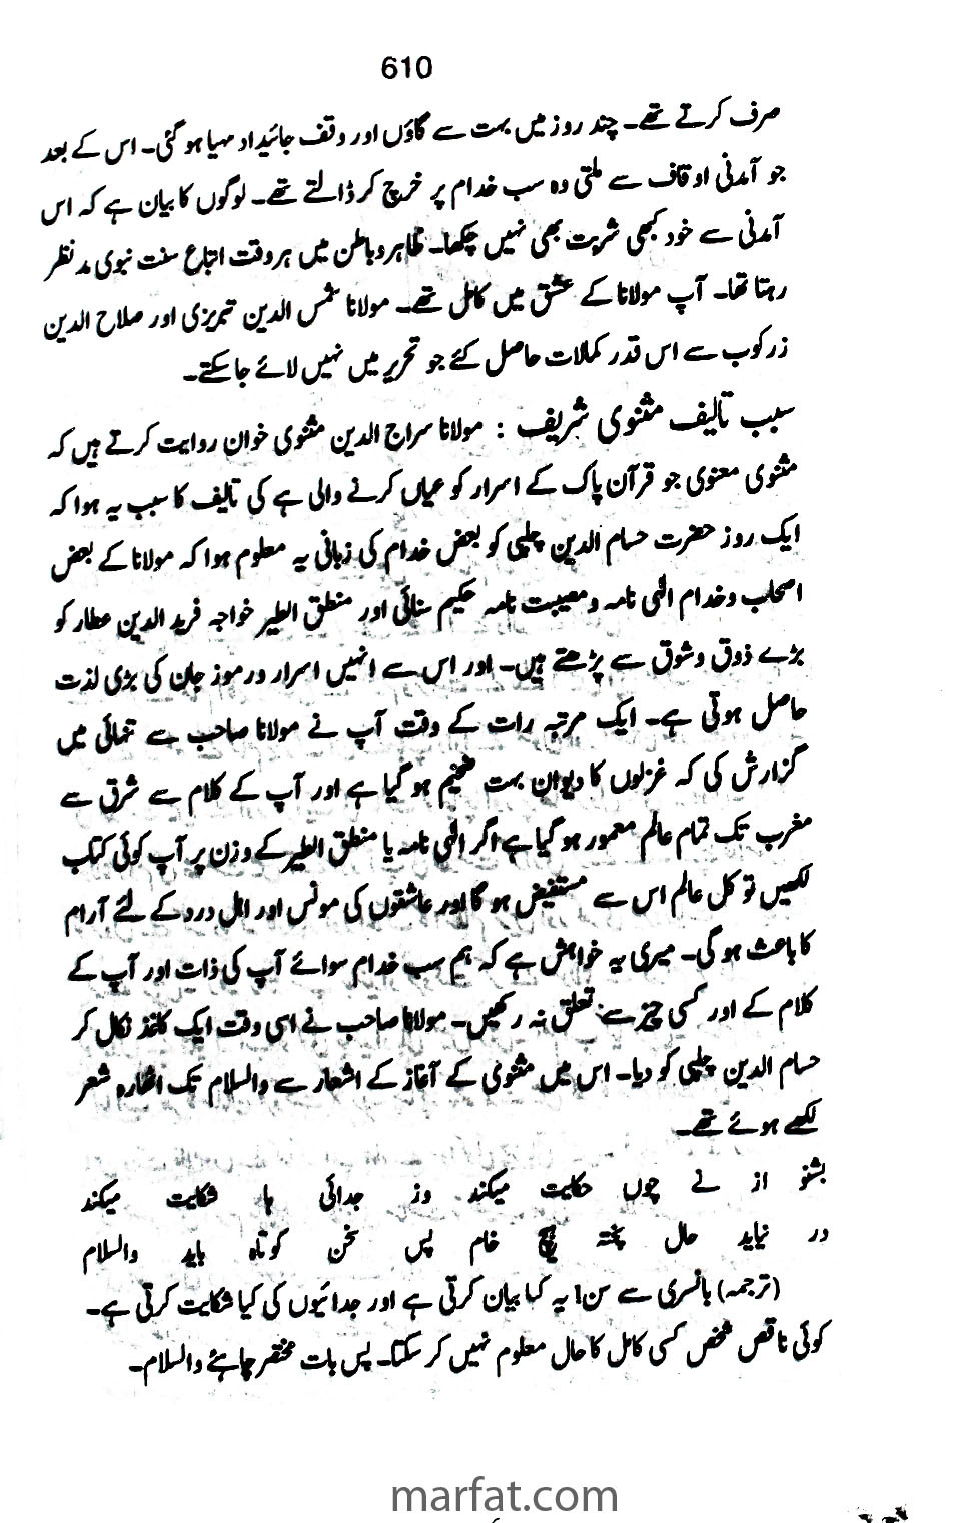 610
صرف کرتے تھے۔ چند روز میں بہت سے گاؤں اور وقف جائیداد مہیا ہو گئی۔ اس کے بعد
جو آمدنی اوقاف سے ملتی وہ سب خدام پر خرچ کر ڈالتے تھے۔ لوگوں کا بیان ہے کہ اس
آمدنی سے خود کبھی شربت بھی نہیں چکھا۔ ظاہر و باطن میں ہر وقت اتباع سنت نبوی مد نظر
رہتا تھا۔ آپ مولانا کے عشق میں کامل تھے۔ مولانا شمس الدین تبریزی اور صلاح الدین
زرکوب سے اس قدر کمالات حاصل کئے جو تحریر میں نہیں لائے جا سکتے۔
سبب تالیف مثنوی شریف : مولانا سراج الدین مثنوی خوان روایت کرتے ہیں کہ
مثنوی معنوی جو قرآن پاک کے اسرار کو عیاں کرنے والی ہے کی تالیف کا سبب یہ ہوا کہ
ایک روز حضرت حسام الدین چلپی کو بعض خدام کی زبانی یہ معلوم ہوا کہ مولانا کے بعض
اصحاب و خدام الٰہی نامہ و مصیبت نامہ حکیم سنائی اور منطق الطیر خواجہ فرید الدین عطار کو
بڑے ذوق و شوق سے پڑھتے ہیں۔ اور اس سے انہیں اسرار و رموز جان کی بڑی لذت
حاصل ہوتی ہے۔ ایک مرتبہ رات کے وقت آپ نے مولانا صاحب سے تنہائی میں
گزارش کی کہ غزلوں کا دیوان بہت ضخیم ہو گیا ہے اور آپ کے کلام سے شرق سے
مغرب تک تمام عالم معمور ہو گیا ہے اگر الٰہی نامہ یا منطق الطیر کے وزن پر آپ کوئی کتاب
لکھیں تو کل عالم اس سے مستفیض ہو گا اور عاشقوں کی مونس اور اہل درد کے لئے آرام
کا باعث ہو گی۔ میری یہ خواہش ہے کہ ہم سب خدام سوائے آپ کی ذات اور آپ کے
کلام کے اور کسی چیز سے تعلق نہ رکھیں۔ مولانا صاحب نے اسی وقت ایک کاغذ نکال کر
حسام الدین چلپی کو دیا۔ اس میں مثنوی کے آغاز کے اشعار سے والسلام تک اٹھارہ شعر
لکھے ہوئے تھے۔
بشنو از نے چوں حکایت میکند وز جدائی ہا شکایت میکند
در نیابد حال پختہ ہیچ خام پس سخن کوتاہ باید والسلام
(ترجمہ) بانسری سے سن! یہ کیا بیان کرتی ہے اور جدائیوں کی کیا شکایت کرتی ہے۔
کوئی ناقص شخص کسی کامل کا حال معلوم نہیں کر سکتا۔ پس بات مختصر چاہئے والسلام۔
marfat.com